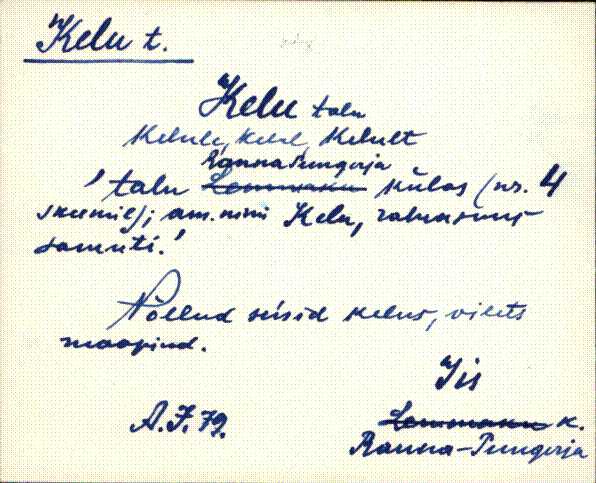 Kelu t.
Kelu talu
Kelule, Kelul, Kelult
RannaPungerja
'talu Lemmaku külas (nr. 4
skeemil); am. nimi Kelu, rahvasuus
samuti.'
Põllud seisid kelus, vilets
maapind.
Iis
A.J. 79.
Lemmaku k.
Ranna-Pungerja